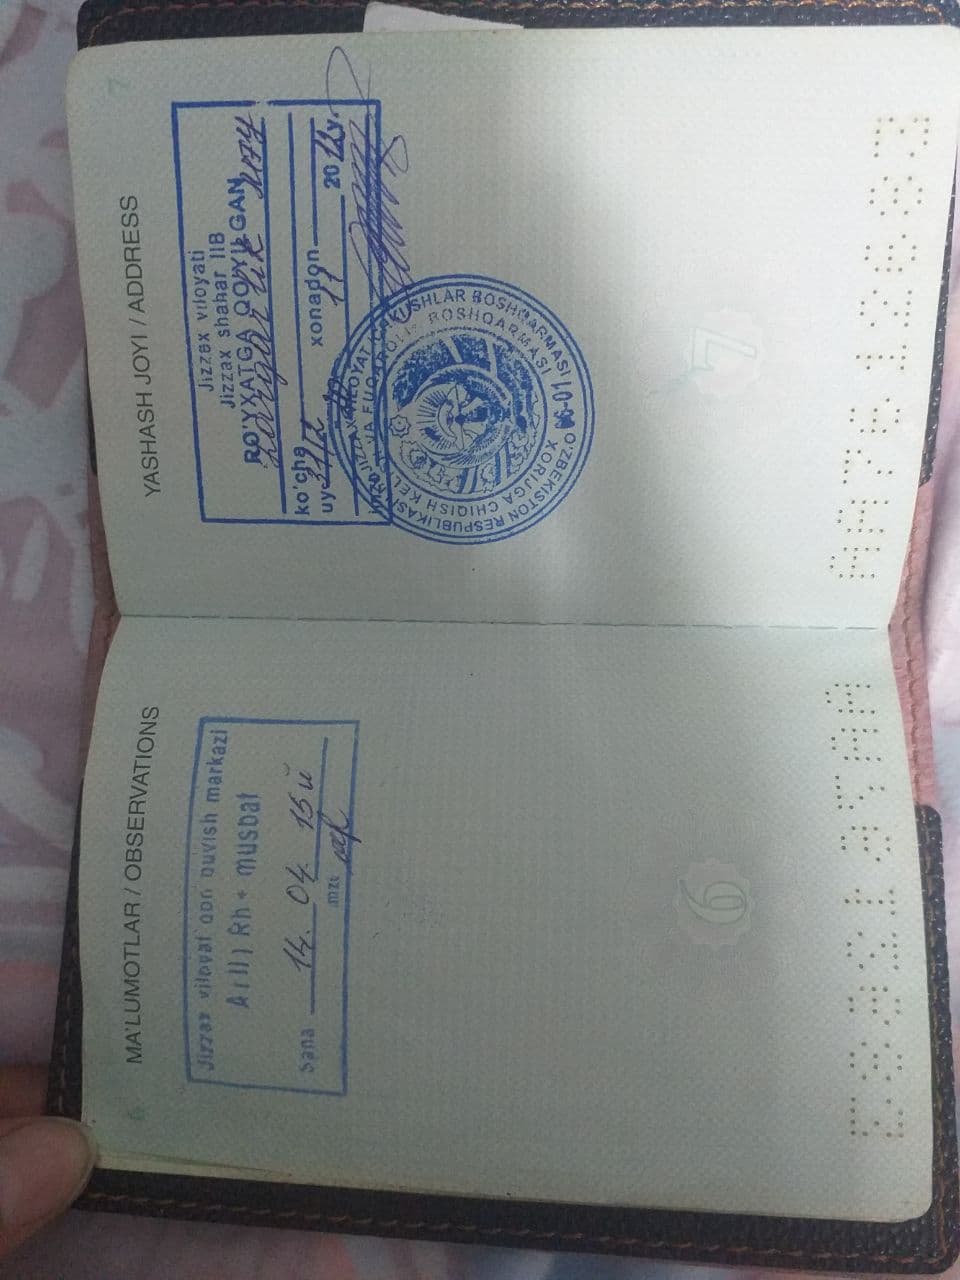 6
MA'LUMOTLAR / OBSERVATIONS
Jizzax viloyat qon quyish markazi
A(II) Rh+ musbat
Sana 14. 04. 15й
mzt
6
7
YASHASH JOYI / ADDRESS
Jizzax viloyati
Jizzax shahar IIB
RO'YXATGA QO'YILGAN
Zargarlik MFY
ko'cha
uy 31/2 xonadon
11 2012y.
O'ZBEKISTON RESPUBLIKASI JIZZAX VILOYAT ICHKI ISHLAR BOSHQARMASI
XORIJGA CHIQISH KELISH VA FUQAROLIK BOSHQARMASI
06-01
7
AA7612683
AA7612683